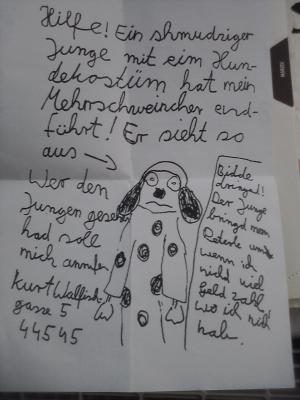 Hilfe! Ein shmudziger
Junge mit eim Hun-
dekostüm hat mein
Mehrschweincher endt-
führt! Er sieht so
aus
Wer den
Jungen gesehen
had soll
mich anrufen
Kurt Walfisch-
gasse 5
44545
Bidde
dringd!
Der Junge
bringd mein
um
wenn ich
nichd viel
Geld zahl,
wo ich nich
hab.